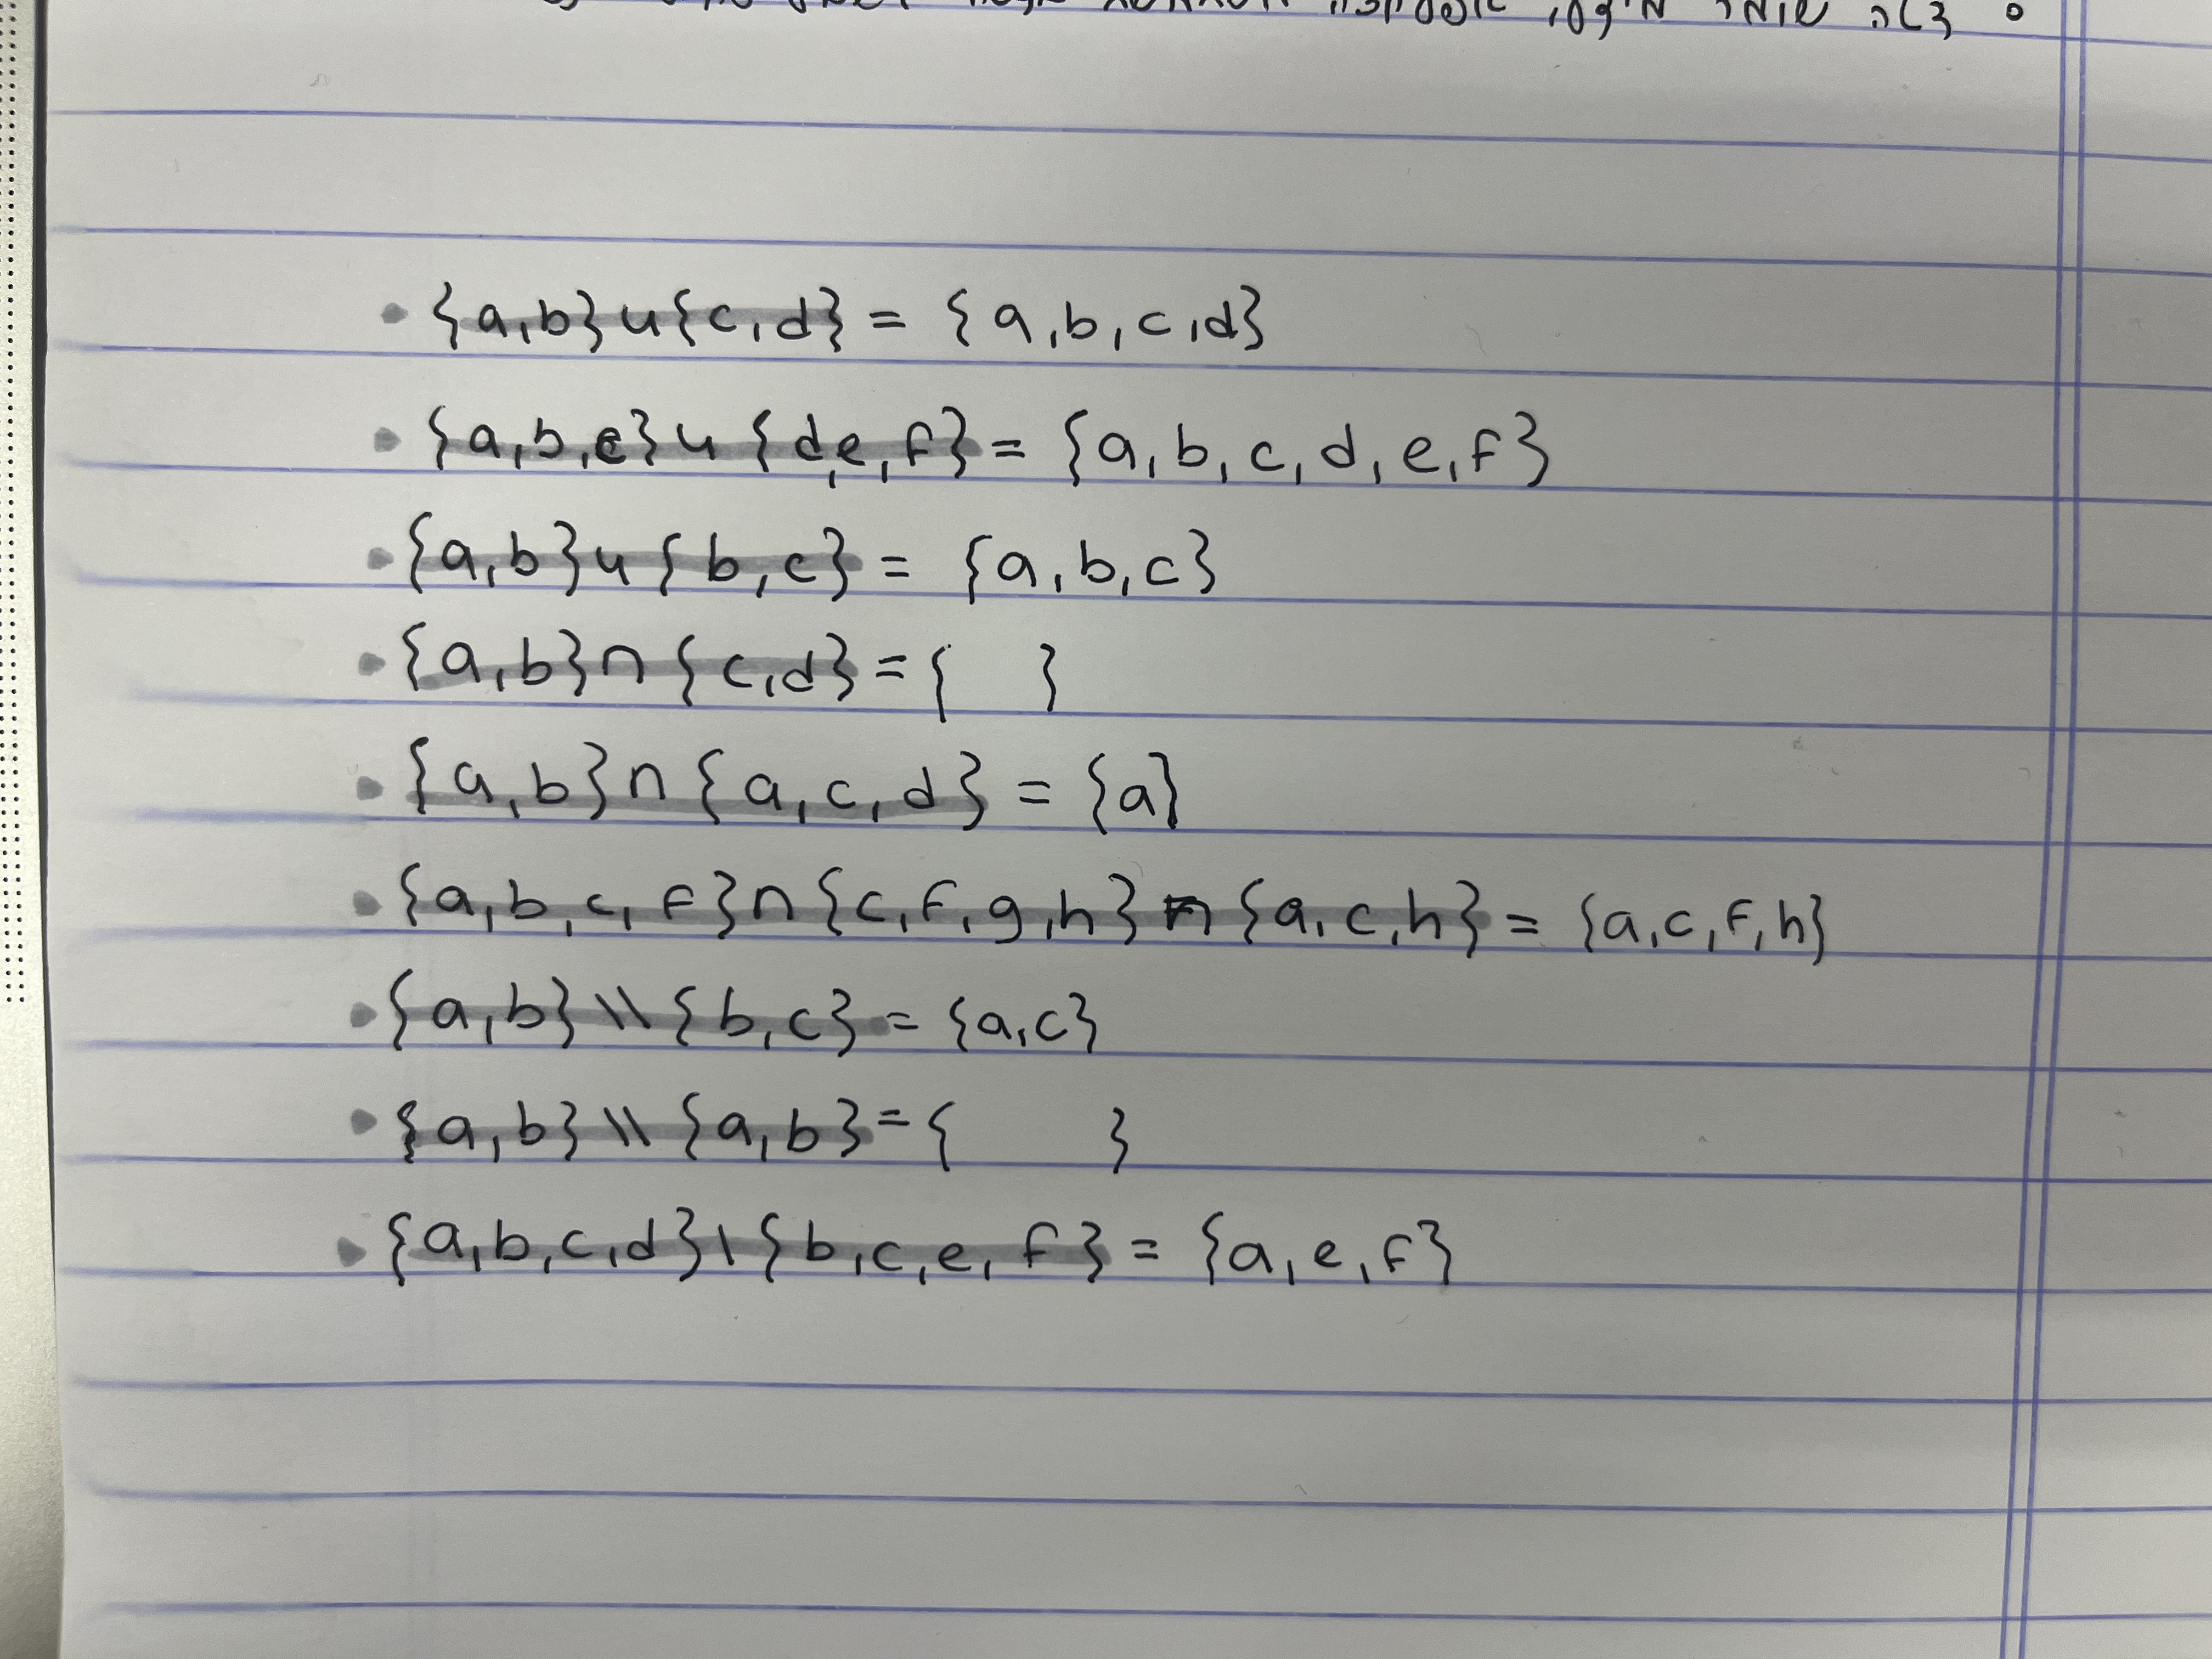 • {a,b}u{c,d} = {a,b,c,d}
• {a,b,c}u{d,e,f} = {a,b,c,d,e,f}
• {a,b}u{b,c} = {a,b,c}
• {a,b}n{c,d} = { }
• {a,b}n{a,c,d} = {a}
• {a,b,c,f}n{c,f,g,h}n{a,c,h} = {a,c,f,h}
• {a,b}\\{b,c} = {a,c}
• {a,b}\\{a,b} = { }
• {a,b,c,d}\{b,c,e,f} = {a,e,f}